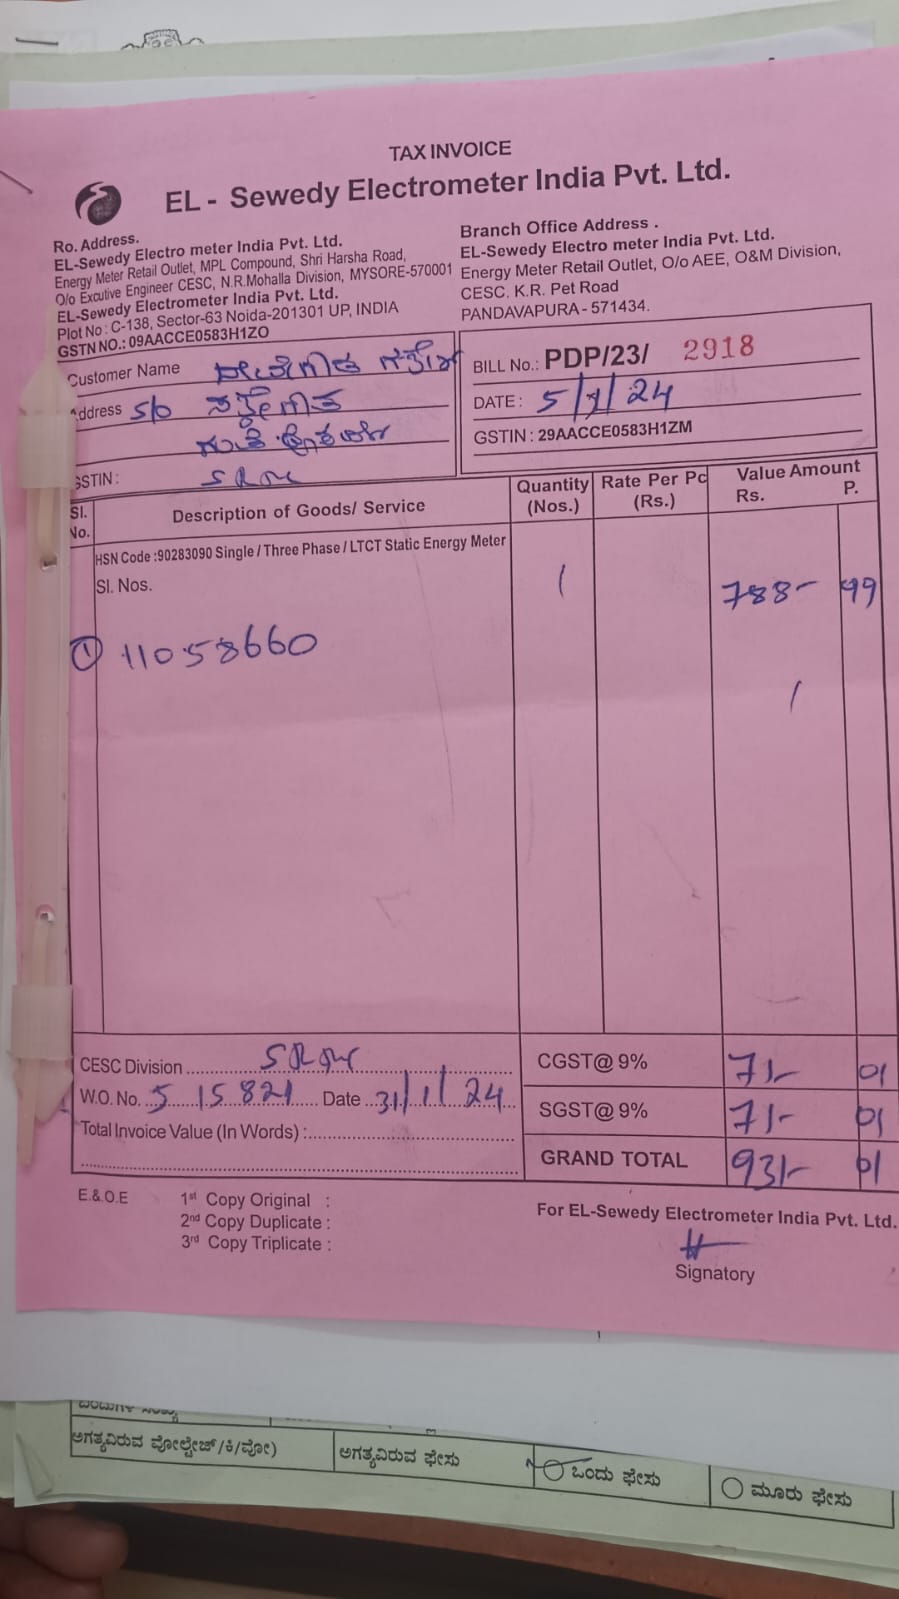 TAX INVOICE
EL - Sewedy Electrometer India Pvt. Ltd.
Ro. Address.
EL-Sewedy Electro meter India Pvt. Ltd.
Energy Meter Retail Outlet, MPL Compound, Shri Harsha Road,
O/o Excutive Engineer CESC, N.R.Mohalla Division, MYSORE-570001
EL-Sewedy Electrometer India Pvt. Ltd.
Plot No : C-138, Sector-63 Noida-201301 UP, INDIA
GSTN NO.: 09AACCE0583H1ZO
Branch Office Address .
EL-Sewedy Electro meter India Pvt. Ltd.
Energy Meter Retail Outlet, O/o AEE, O&M Division,
CESC. K.R. Pet Road
PANDAVAPURA - 571434.
Customer Name
Address S/o
GSTIN :
BILL No.: PDP/23/ 2918
DATE : 5/1/24
GSTIN : 29AACCE0583H1ZM
Sl. No. Description of Goods/ Service Quantity (Nos.) Rate Per Pc (Rs.) Value Amount Rs. P.
HSN Code :90283090 Single / Three Phase / LTCT Static Energy Meter
Sl. Nos. 1 788- 99
① 11058660
CESC Division
CGST@ 9% 71- 01
W.O. No. 515821 Date 31/1/24
SGST@ 9% 71- 01
Total Invoice Value (In Words) :
GRAND TOTAL 931- 01
E.&.O.E
1st Copy Original :
2nd Copy Duplicate :
3rd Copy Triplicate :
For EL-Sewedy Electrometer India Pvt. Ltd.
Signatory
ಅಗತ್ಯವಿರುವ ವೋಲ್ಟೇಜ್/ಕಿ/ವೋ) ಅಗತ್ಯವಿರುವ ಫೇಸು ಒಂದು ಫೇಸು ಮೂರು ಫೇಸು